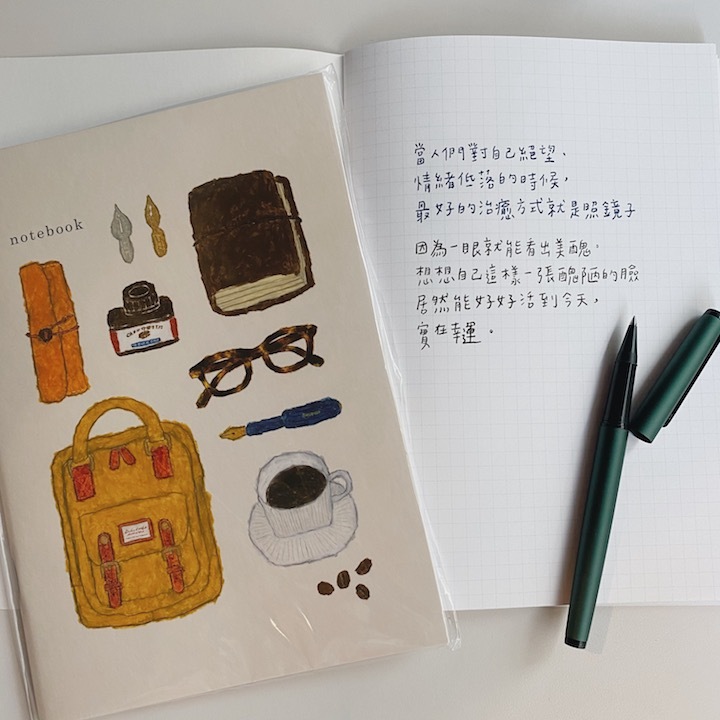 notebook
當人們對自己絕望、
情緒低落的時候，
最好的治癒方式就是照鏡子
因為一眼就能看出美醜。
想想自己這樣一張醜陋的臉
居然能好好活到今天，
實在幸運。